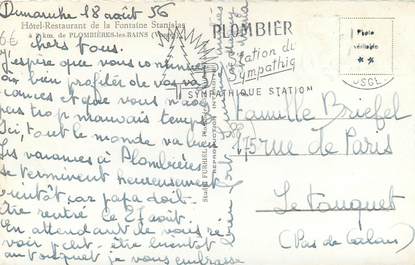 Dimanche 18 août 56
Hôtel-Restaurant de la Fontaine Stanislas
à km. de PLOMBIÈRES-les-BAINS (Vosges)
6€
Chers tous.
J'espère que vous continuez
à bien profiter de vos va-
cances et que vous n'avez
pas trop mauvais temps
Ici, tout le monde va bien
Les vacances ici Plombières
se terminent heureusement
bientôt car papa doit
être rentré le 21 août.
En attendant de vous re
voir peut-être bientôt
au Touquet je vous embrasse
bien fort
PLOMBIER
Station du
Sympathi
SYMPATHIQUE STATION
Photo
véritable
Famille Briefel
75 rue de Paris
Le Touquet
(Pas de Calais)
REPRODUCTION